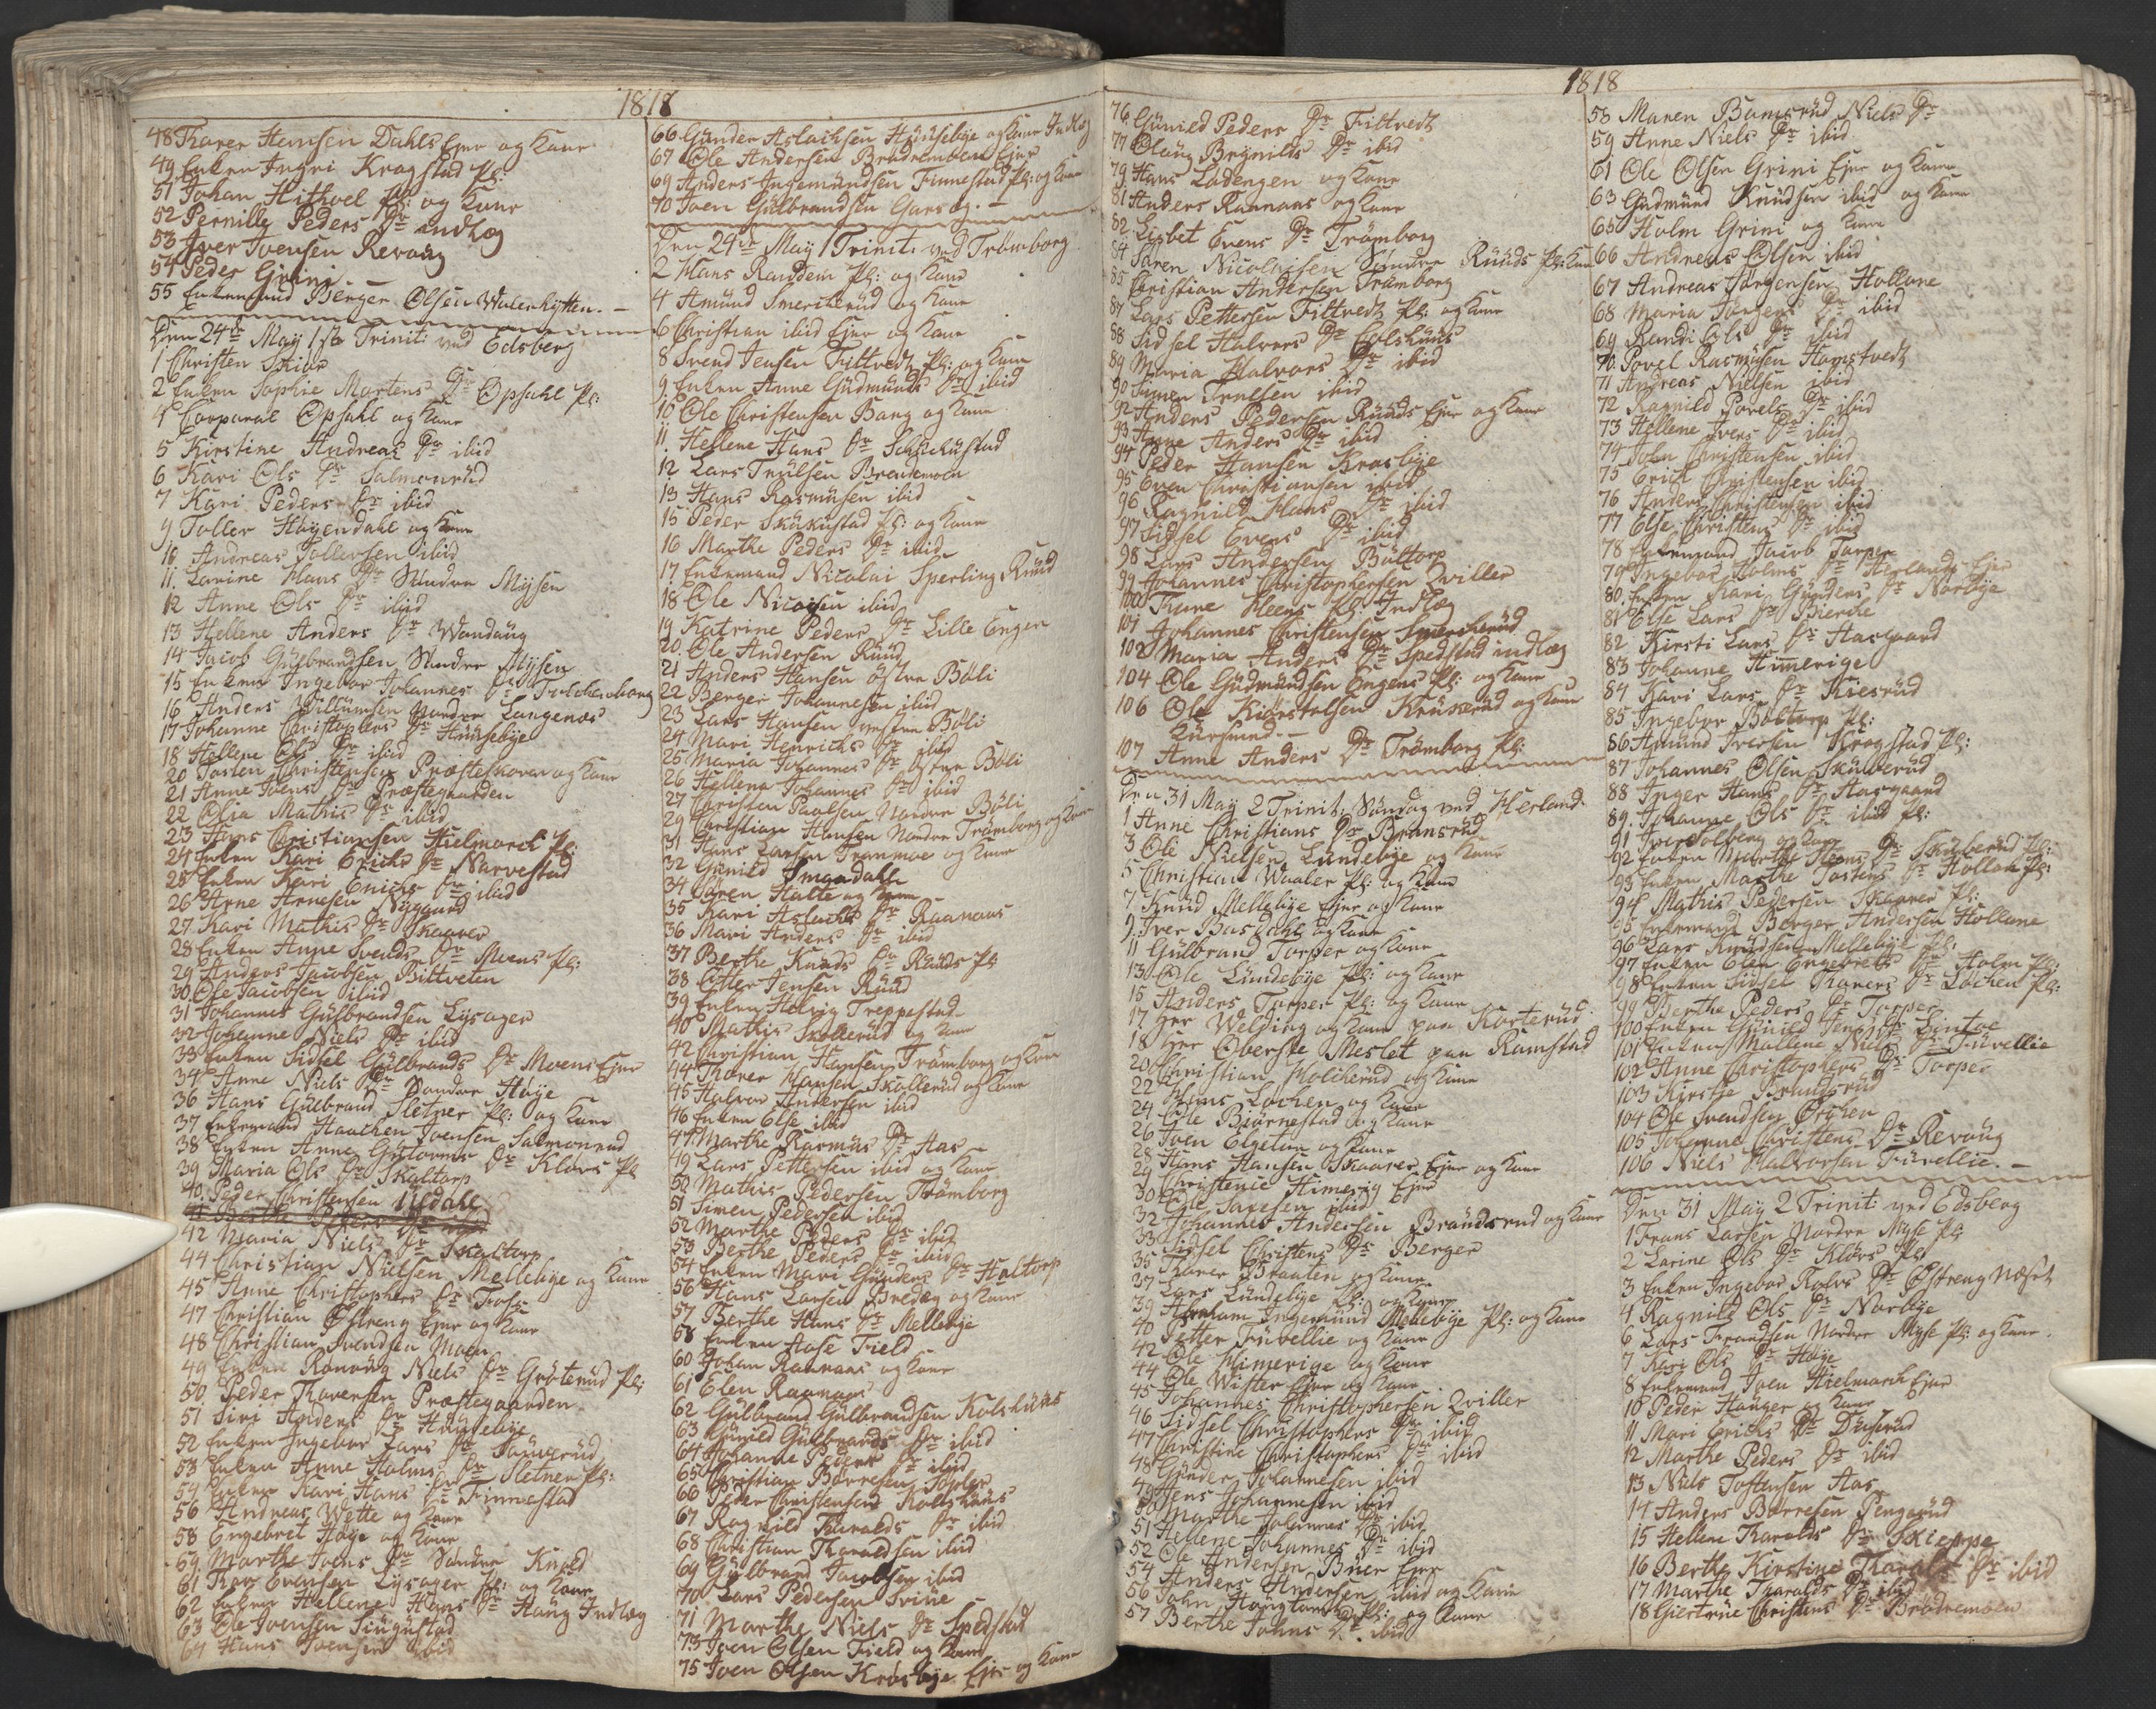 1818
48 Tharer Hansen Dahls Ejer og Kone
49 Enken Ingri Kragstad Pl:
51 Johan Hithvel Pl: og Kone
52 Pernille Peders Dr indlæg
53 Iver Ivensen Revoüg
54 Peder Grini
55 Enkemand Berger Olsen Walerhytten. —
Den 24de May 1ste Trinit: ved Edsberg
1 Christen Skiør
2 Enken Sophie Mortens Dr Opsahl Pl:
4 Corporal Opsahl og Kone
5 Kirstine Andreas Dr ibid
6 Kari Ols Dr Salmonrüd
7 Kari Peders Dr ibid
9 Toller Høyendahl og Kone
10 Andreas Tollersen ibid
11 Larine Hans Dr Søndre Mysen
12 Anne Ols Dr ibid
13 Hellene Anders Dr Wandaüg
14 Jacob Gülbrandsen Søndre Mysen
15 Enken Ingebor Johannes Dr
16 Anders Willümsen Nordre Langenæs
17 Johanne Christophers Dr Hüüsebÿe
18 Hellene Ols Dr ibid
20 Torsten Christensen Præsteskoven og Kone
21 Anne Ivers Dr Præstegaarden
22 Olia Mathis Dr ibid
23 Hans Christiansen Hielmarck Pl:
24 Enken Kari Erichs Dr Narvestad
25 Enken Kari Erichs Dr ibid
26 Arne Arnesen Nÿgaard
27 Kari Mathis Dr Skaarer
28 Enken Anne Svends Dr Moens Pl:
29 Anders Jacobsen Bittveten
30 Ole Jacobsen ibid
31 Johannes Gülbrandsen Lysager
32 Johanne Niels Dr ibid
33 Enken Sidsel Gülbrands Dr Moens Ejer
34 Anne Niels Dr Søndre Høye
36 Hans Gülbrand Sletner Pl: og Kone
37 Enkemand Haachen Ivensen Salmonrud
38 Enken Anne Güttorms Dr Kløvs Pl
39 Maria Ols Dr Skaltorp
40 Peder Christensen Ildahl
42 Maria Niels Dr Skaltorp
44 Christian Nielsen Mellebye og Kone
45 Anne Christophers Dr Foss
47 Christian Østreng Ejer og Kone
48 Christian Svendsen Moen
49 Enken Rønnoüg Niels Dr Grøterüd Pl:
50 Peder Thoversen Præstegaarden
51 Siri Anders Dr Hüüsebye
52 Enken Ingebor Lars Dr
53 Enken Anne Holms Dr Sletner Pl:
54 Enken Kari Hans Dr Finnestad
56 Andreas Wette og Kone
58 Engebret Høye og Kone
59 Marthe Ivens Dr Søndre Knold
61 Thor Evensen Lysager Pl: og Kone
62 Enken Hellene Hans Dr Haüg Indlæg
63 Ole Ivensen Siügüstad
64 Hans Ivensen ibid
66 Günder Aslachsen Hüüsebye og Kone Indlæg
67 Ole Andersen Brødremoen Ejer
69 Anders Ingemündsen Finnestad Pl: og Kone
70 Iven Gülbrandsen Garseg. —
Den 24de May 1 Trinit: ved Trømborg
2 Hans Randem Pl: og Kone
4 Amünd Smercherüd og Kone
6 Christian ibid Ejer og Kone
8 Svend Jensen Fittvedt Pl: og Kone
9 Enken Anne Güdmünds Dr ibid
10 Ole Christensen Bang og Kone
11 Hellene Hans Dr Schüküstad
12 Lars Trülsen Brendemoen
13 Hans Rasmüsen ibid
15 Peder Sküküstad Pl: og Kone
16 Marthe Peders Dr ibid
17 Enkemand Nicolai Sperling Rüüd
18 Ole Nicolaisen ibid
19 Katrine Peders Dr Lille Enger
20 Ole Andersen Rüüd
21 Anders Hansen østre Bøli
22 Berger Johannesen ibid
23 Lars Hansen vestre Bøli
24 Mari Henrichs Dr ibid
25 Maria Johannes Dr østre Bøli
26 Hellena Johannes Dr ibid
27 Christen Paalsen Nordre Bøli
29 Christian Hansen Nordre Trømborg og Kone
31 Hans Larsen Trønmoe og Kone
32 Günild Smaadahl
34 Søren Halte og Kone
35 Kari Aslachs Dr Raanaas
36 Mari Anders Dr ibid
37 Berthe Knuds Dr Rüüds Pl
38 Otter Jensen Rüüd
39 Enken Helvig Treppestad
40 Mathis Skollerüd og Kone
42 Christian Hansen Trømborg og Kone
44 Thorer Hansen Skollerüd og Kone
45 Halvor Andersen ibid
46 Enken Else ibid
47 Marthe Rasmüs Dr Aas
49 Lars Pettersen ibid og Kone
50 Mathis Pedersen Trømborg
51 Simen Pedersen ibid
52 Marthe Peders Dr ibid
53 Berthe Peders Dr ibid
54 Enken Mari Günders Dr Haltorp
56 Hans Larsen Bredeg og Kone
57 Berthe Hans Dr Mellebye
58 Enken Aase Field
60 Johan Raanaas og Kone
61 Elen Raanaas
62 Gülbrand Gülbrandsen Kolshüüs
63 Günild Gülbrands Dr ibid
64 Johanne Peders Dr ibid
65 Christian Børresen
66 Peder Christensen Kolshüüs
67 Ragnild Tharalds Dr ibid
68 Christian Tharaldsen ibid
69 Gülbrand Jacobsen ibid
70 Lars Pedersen Grine
71 Marthe Niels Dr Spedstad
73 Iven Olsen Field og Kone
75 Iven Olsen Krosbye Ejer og Kone
1818
76 Günild Peders Dr Fittvedt
77 Olaüg Brynilds Dr ibid
79 Hans Ladengen og Kone
81 Anders Raanaas og Kone
82 Lisbet Evens Dr Trømborg
84 Søren Nicolaisen Søndre Rüüds Pl: Kone
85 Christian Andersen Trømborg
87 Lars Pettersen Fittvedt Pl: og Kone
88 Sidsel Halvors Dr Colshüüs
89 Maria Halvors Dr ibid
90 Simen Trulsen ibid
92 Anders Pedersen Rüüds Ejer og Kone
93 Anne Anders Dr ibid
94 Peder Hansen Krosbye
95 Even Christiansen ibid
96 Ragnild Hans Dr ibid
97 Sidsel Evens Dr ibid
98 Lars Andersen Büttorp
99 Johannes Christophersen Zviller
100 Thune Heens Pl: Indlæg
101 Johannes Christensen Smercherüd
102 Maria Anders Dr Spedstad indlæg
104 Ole Güdmündsen Engens Pl: og Kone
106 Ole Kiørstølsen Krükerüd og Kone
Kürsmed. —
107 Anne Anders Dr Trømborg Pl:
Den 31 May 2 Trinit: Søndag ved Herland
1 Anne Christians Dr Brunsrüd
3 Ole Nielsen Lundebye og Kone
5 Christian Waaler Pl: og Kone
7 Knüd Mellebye Ejer og Kone
9 Iver Basdahl og Kone
11 Gülbrand Torper og Kone
13 Ole Lündebye Pl: og Kone
15 Anders Torper Pl: og Kone
17 Hr Welding og Kone paa Korterüd
18 Hr Oberste Meslet paa Ramstad
20 Christian Molcherüd og Kone
22 Hans Løchen og Kone
24 Ole Biørnestad og Kone
26 Iven Elgetun og Kone
28 Hans Hansen Skaarer Ejer og Kone
29 Christense Himerig Ejer
30 Ole Tarjesen ibid
32 Johannes Andersen Brandsrud og Kone
33 Sidsel Christens Dr Berger
35 Thorer Braaten og Kone
37 Lars Lündebye Pl: og Kone
39 Abraham Ingemünd Mellebye Pl: og Kone
40 Petter Fürellie og Kone
42 Ole Himerige og Kone
44 Ole Wister Ejer og Kone
45 Johannes Christophersen Zviller
46 Sidsel Christophers Dr ibid
47 Christine Christophers Dr ibid
48 Günder Johannesen ibid
49 Jens Johannesen ibid
50 Marthe Johannes Dr ibid
51 Hellene Johannes Dr ibid
52 Ole Andersen Büer Ejer
54 Anders Andersen ibid og Kone
56 John Haügtorp Pl: og Kone
57 Berthe Johns Dr ibid
58 Maren Bamsrüd Niels Dr
59 Anne Niels Dr ibid
61 Ole Olsen Grini Ejer og Kone
63 Güdmünd Knüdsen ibid og Kone
65 Holm Grini og Kone
66 Andreas Olsen ibid
67 Andreas Jørgensen Hollane
68 Maria Jørgens Dr ibid
69 Randi Ols Dr ibid
70 Povel Rasmüsen Hamstvedt
71 Andreas Nielsen ibid
72 Ragnild Povels Dr ibid
73 Hellene Ivers Dr ibid
74 John Christensen ibid
75 Erich Christensen ibid
76 Anders Christensen ibid
77 Else Christens Dr ibid
78 Enkemand Jacob Torper
79 Ingebor Holms Dr Herlands Ejer
80 Enken Kari Günders Dr Norbye
81 Else Lars Dr Bierche
82 Kirsti Lars Dr Haagaard
83 Johanne Himerige
84 Kari Lars Dr Kiesrüd
85 Ingebor Boltorp Pl:
86 Amünd Iversen Kragstad Pl:
87 Johannes Olsen Skülberüd
88 Inger Hans Dr Haagaard
89 Johanne Ols Dr ibid Pl:
91 Iver Solberg og Kone
92 Enken Marthe Steens Dr Skülberüd Pl:
93 Enken Marthe Tostens Dr Hollane Pl:
94 Mathis Pedersen Skaarer Pl:
95 Enkemand Berger Andersen Hollane
96 Lars Knüdsen Mellebye Pl:
97 Enken Elen Engebrets Dr Holm Pl:
98 Enken Sidsel Thorers Dr Løchen Pl:
99 Berthe Peders Dr Torper
100 Enken Günild Jens Dr Lintoe
101 Enken Mallene Niels Dr Fürellie
102 Anne Christophers Dr Torper
103 Kirstje Brandsrüd
104 Ole Svendsen Ørchen
105 Johanne Christens Dr Revoüg
106 Niels Halvorsen Fürellie. —
Den 31 May 2 Trinit: ved Edsberg
1 Frans Larsen Nordre Myse Pl
2 Larine Ols Dr Kløvs Pl
3 Enken Ingebor Rolvs Dr Østreng Næset
4 Ragnild Ols Dr Norbye
6 Lars Frandsen Nordre Myse Pl: og Kone
7 Kari Ols Dr Høye
8 Enkemand Iven Hielmarck Ejer
10 Peder Haüger og Kone
11 Mari Erichs Dr Düserüd
12 Marthe Peders Dr ibid
13 Niels Tostensen Aas
14 Anders Børresen Pengerüd
15 Hellene Tharalds Dr Skieppe
16 Berthe Kirstine Tharalds Dr ibid
17 Marthe Tharalds Dr ibid
18 Giertrüe Christens Dr Brødremoen